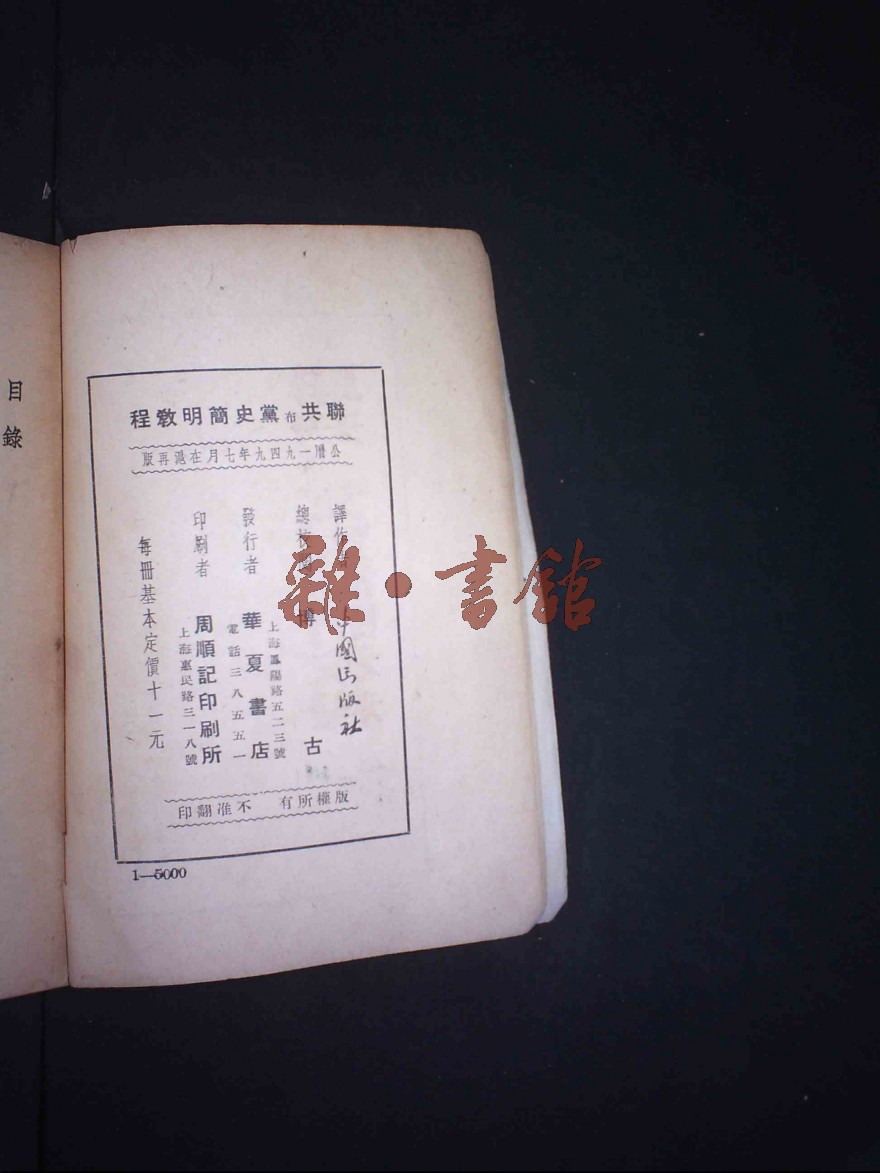 聯共布黨史簡明敎程
公曆一九四九年七月在滬再版
譯作者 中國出版社
總校閱 博古
發行者 華夏書店
上海鳳陽路五二三號
電話三八五五一
印刷者 周順記印刷所
上海惠民路三一八號
每冊基本定價十一元
版權所有 不准翻印
1—5000
目錄
雜·書館